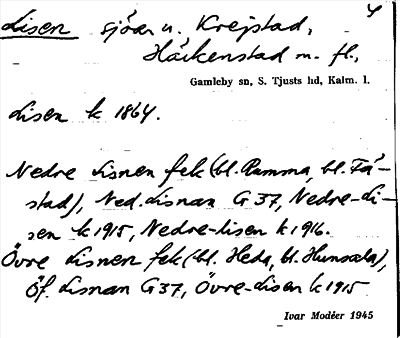 Lisen sjöar u. Krejstad,
Häckenstad m. fl.,
Gamleby sn, S. Tjusts hd, Kalm. l.
Lisen k 1864.
Nedre Lisnen fek (bl. Ramma, bl. Få-
stad), Ned. Lisnan G 37, Nedre-Li-
sen k 1915, Nedre-lisen k 1916.
Övre Lisnen fek (bl. Heda, bl. Hunsala),
Öf. Lisnan G 37, Övre-Lisen k 1915
Ivar Modéer 1945